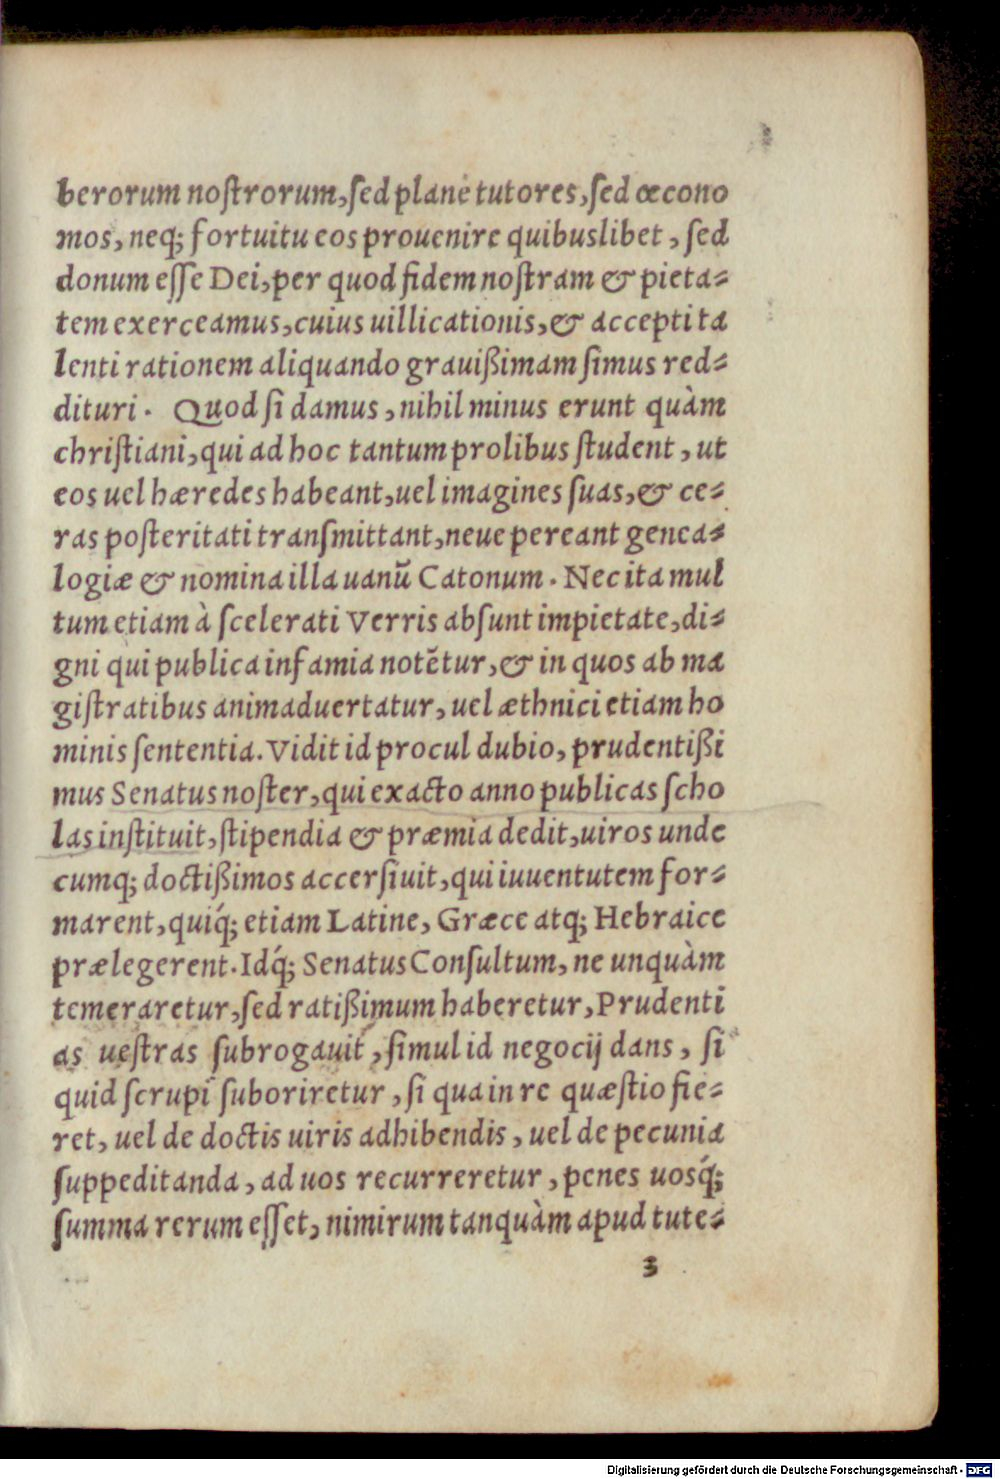 berorum noſtrorum, ſed planè tutores, ſed œcono
mos, neq; fortuitu eos prouenire quibuslibet, ſed
donum eſſe Dei, per quod fidem noſtram & pieta-
tem exerceamus, cuius uillicationis, & accepti ta
lenti rationem aliquando grauißimam ſimus red-
dituri. Quod ſi damus, nihil minus erunt quàm
chriſtiani, qui ad hoc tantum prolibus ſtudent, ut
eos uel hæredes habeant, uel imagines ſuas, & ce-
ras poſteritati tranſmittant, neue pereant genea-
logiæ & nomina illa uanũ Catonum. Nec ita mul
tum etiam à ſcelerati Verris abſunt impietate, di-
gni qui publica infamia notẽtur, & in quos ab ma
giſtratibus animaduertatur, uel æthnici etiam ho
minis ſententia. Vidit id procul dubio, prudentißi
mus Senatus noſter, qui exacto anno publicas ſcho
las inſtituit, ſtipendia & præmia dedit, uiros unde
cumq; doctißimos accerſiuit, qui iuuentutem for-
marent, quiq́; etiam Latine, Græce atq; Hebraice
prælegerent. Idq́; Senatus Conſultum, ne unquàm
temeraretur, ſed ratißimum haberetur, Prudenti
as ueſtras ſubrogauit, ſimul id negocij dans, ſi
quid ſcrupi ſuboriretur, ſi qua in re quæſtio fie-
ret, uel de doctis uiris adhibendis, uel de pecunia
ſuppeditanda, ad uos recurreretur, penes uosq́;
ſumma rerum eſſet, nimirum tanquàm apud tute-
3
Digitalisierung gefördert durch die Deutsche Forschungsgemeinschaft - DFG